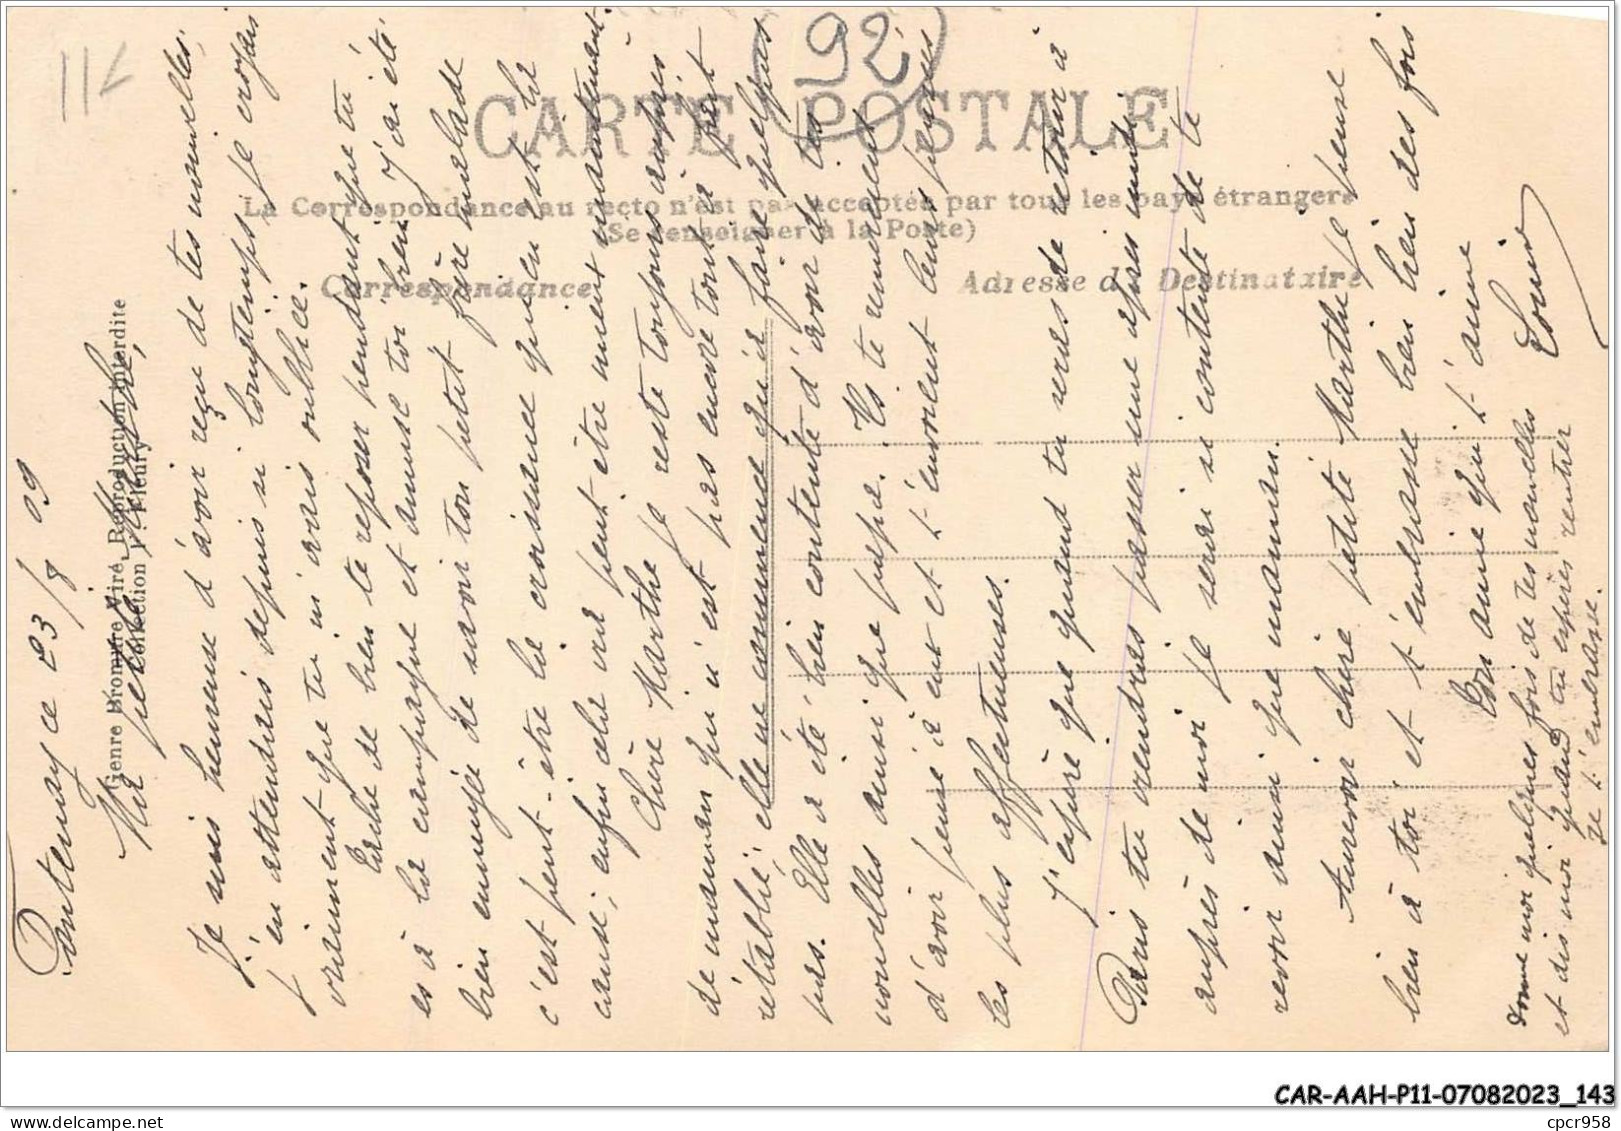 92
CARTE POSTALE
La Correspondance au recto n'est pas acceptée par tous les pays étrangers
(Se renseigner à la Poste)
Correspondance
Adresse du Destinataire
Genre Bromure Viré, Reproduction Interdite
Collection J. Fleury
Fontenay ce 23/8 09
Ma petite Marthe,
Je suis heureuse d'avoir reçu de tes nouvelles.
J'en attendais depuis si longtemps, je croyais
vraiment que tu m'avais oubliée.
Tâche de bien te reposer pendant que tu
es à la campagne et amuse toi bien. J'ai été
bien ennuyée de savoir ton petit frère malade
c'est peut-être la croissance qui en est la
cause, enfin cela va peut être mieux maintenant.
Chère Marthe je reste toujours auprès
de maman qui n'est pas encore tout à fait
rétablie elle ne commence qu'à faire quelques
pas. Elle a été bien contente d'avoir de tes
nouvelles ainsi que papa. Ils te remercient
d'avoir pensé à eux et t'envoient leurs pensées
les plus affectueuses.
J'espère que quand tu seras de retour à
Paris tu viendras passer une après midi
auprès de moi je serai si contente de te
revoir ainsi que maman.
Aurevoir chère petite Marthe je pense
bien à toi et t'embrasse bien bien des fois
Ton amie qui t'aime
Louise
donne moi quelques fois de tes nouvelles
et dis moi quand tu espères rentrer
je t'embrasse.
CAR-AAH-P11-07082023_143
cpcr958